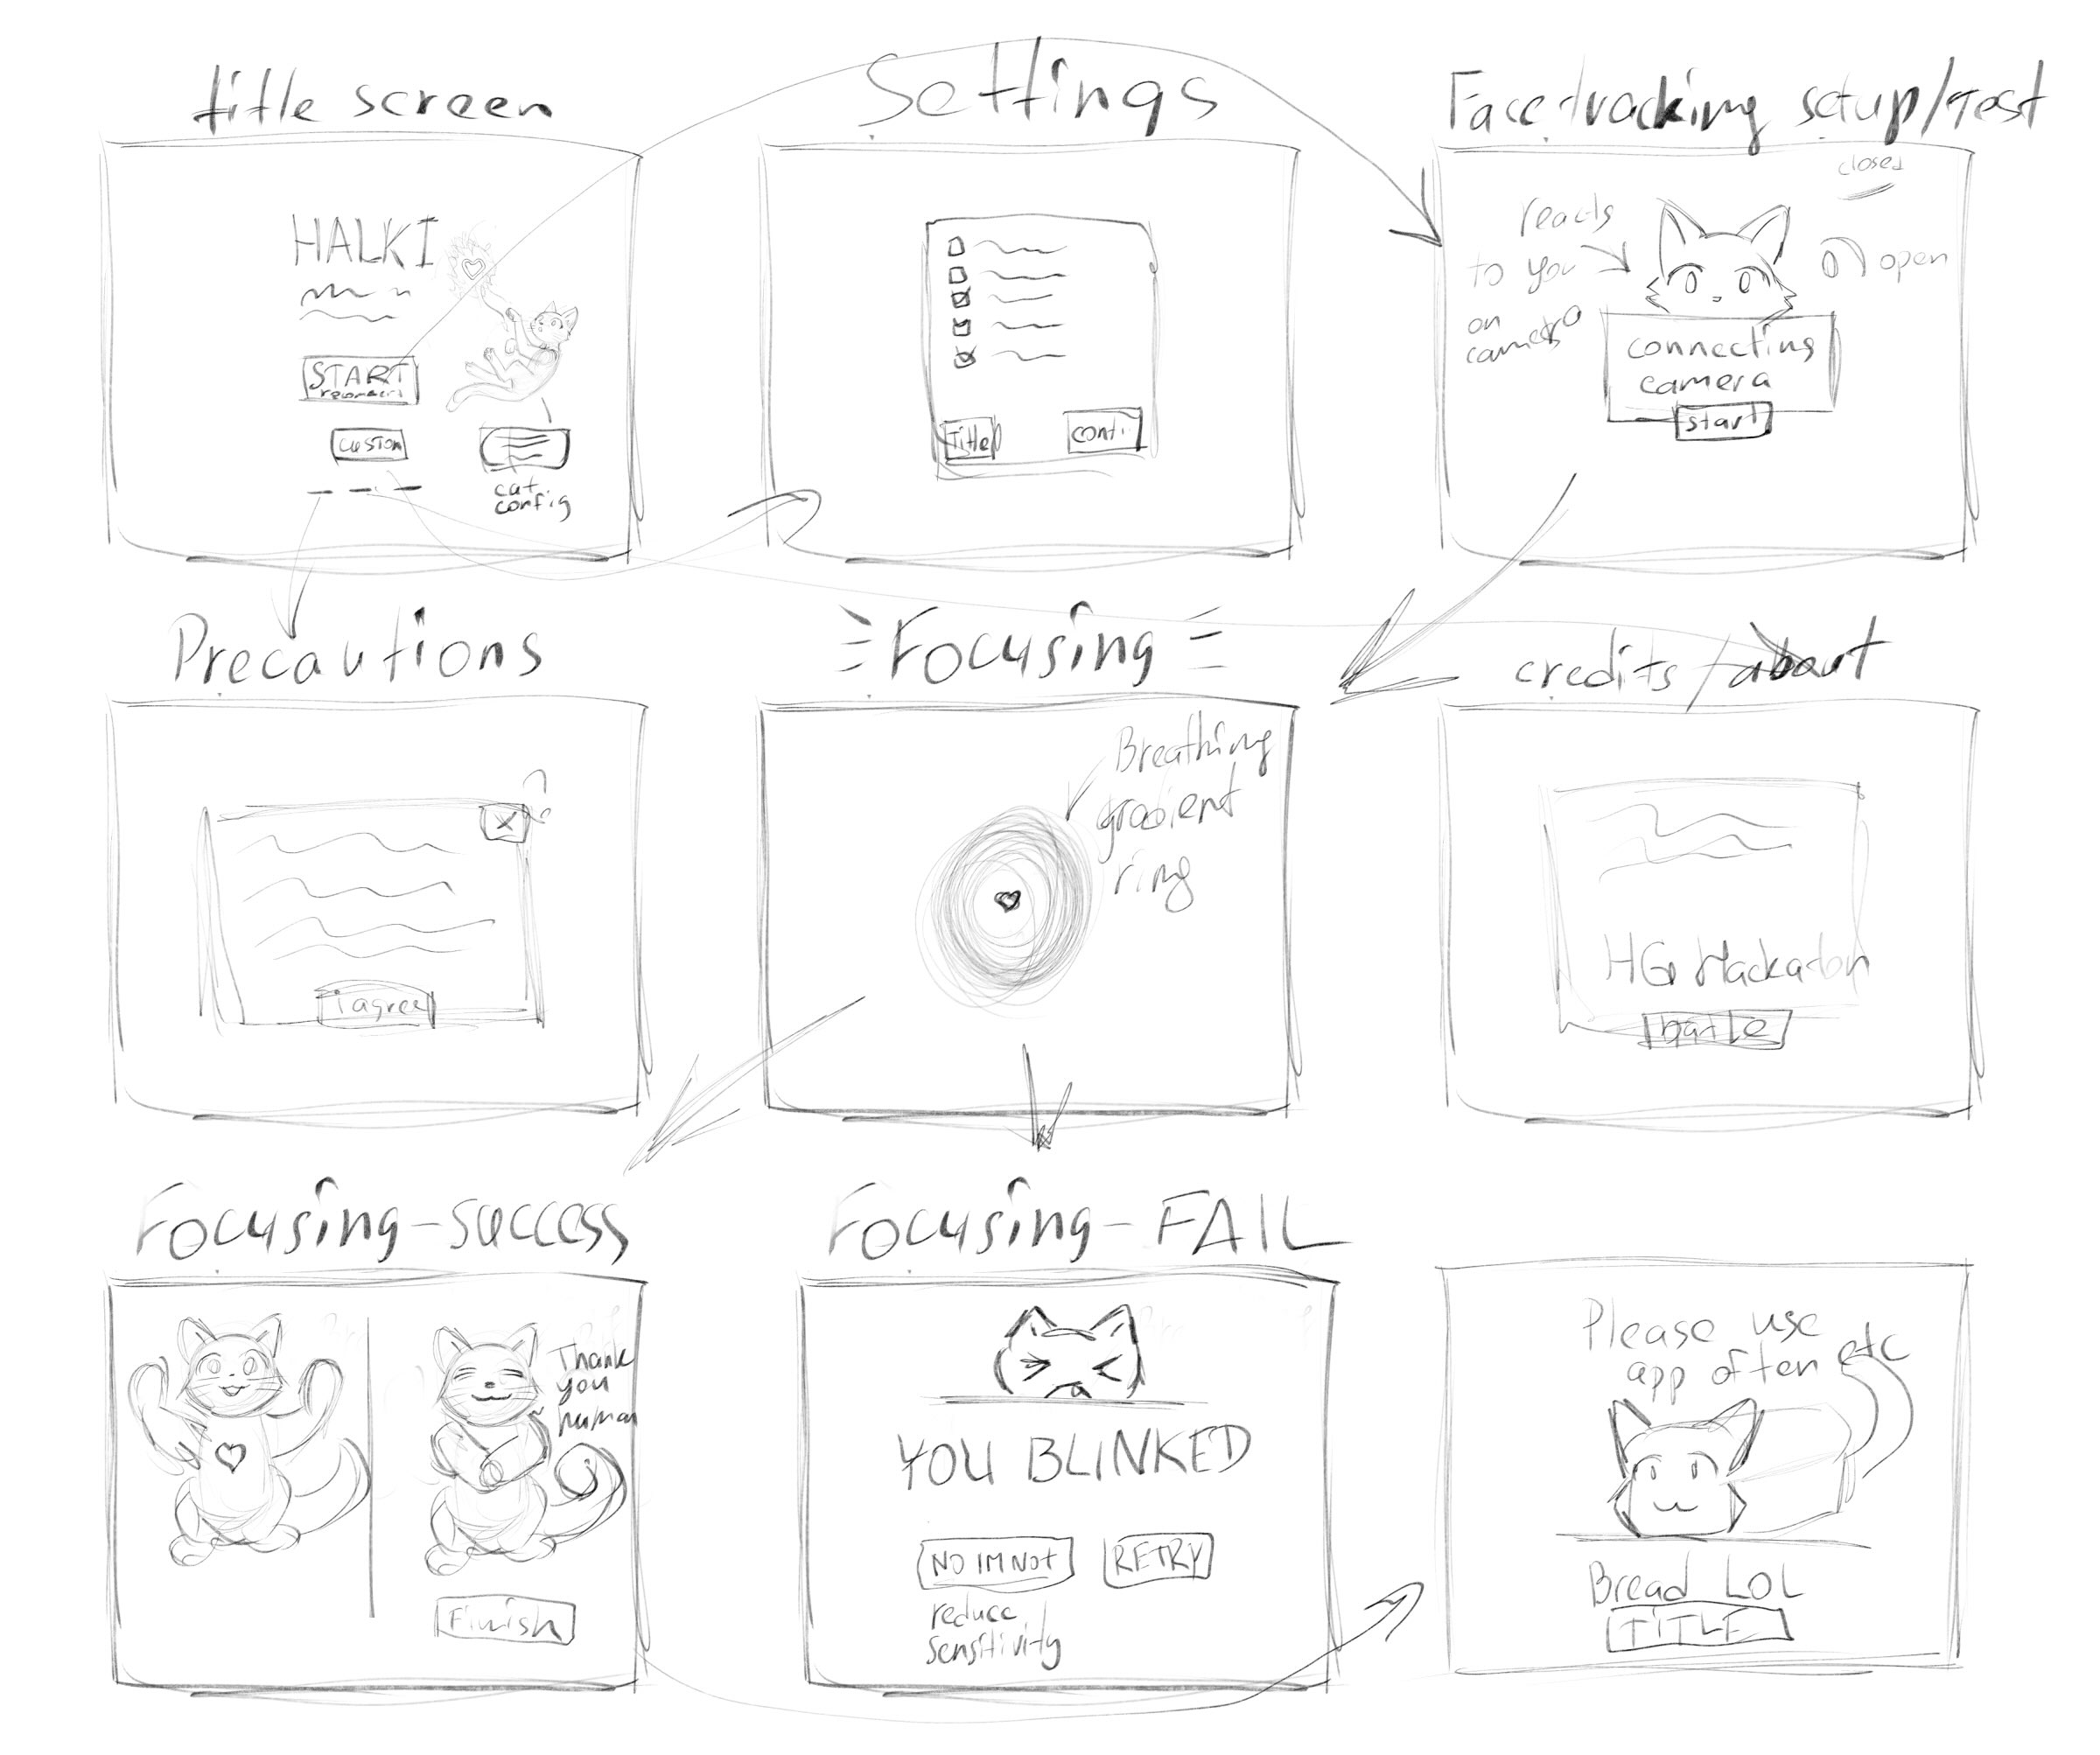 title screen
HALKI
START
custom
cat
config
Settings
Title
conti
Face-tracking setup/test
closed
reacts
to you
on
camera
open
connecting
camera
start
Precautions
X
i agree
Focusing
Breathing
gradient
ring
credits/about
HG Hackaton
Focusing-success
Thank
you
human
Finish
Focusing-FAIL
YOU BLINKED
NO IM NOT
RETRY
reduce
sensitivity
Please use
app often etc
Bread LOL
TITLE